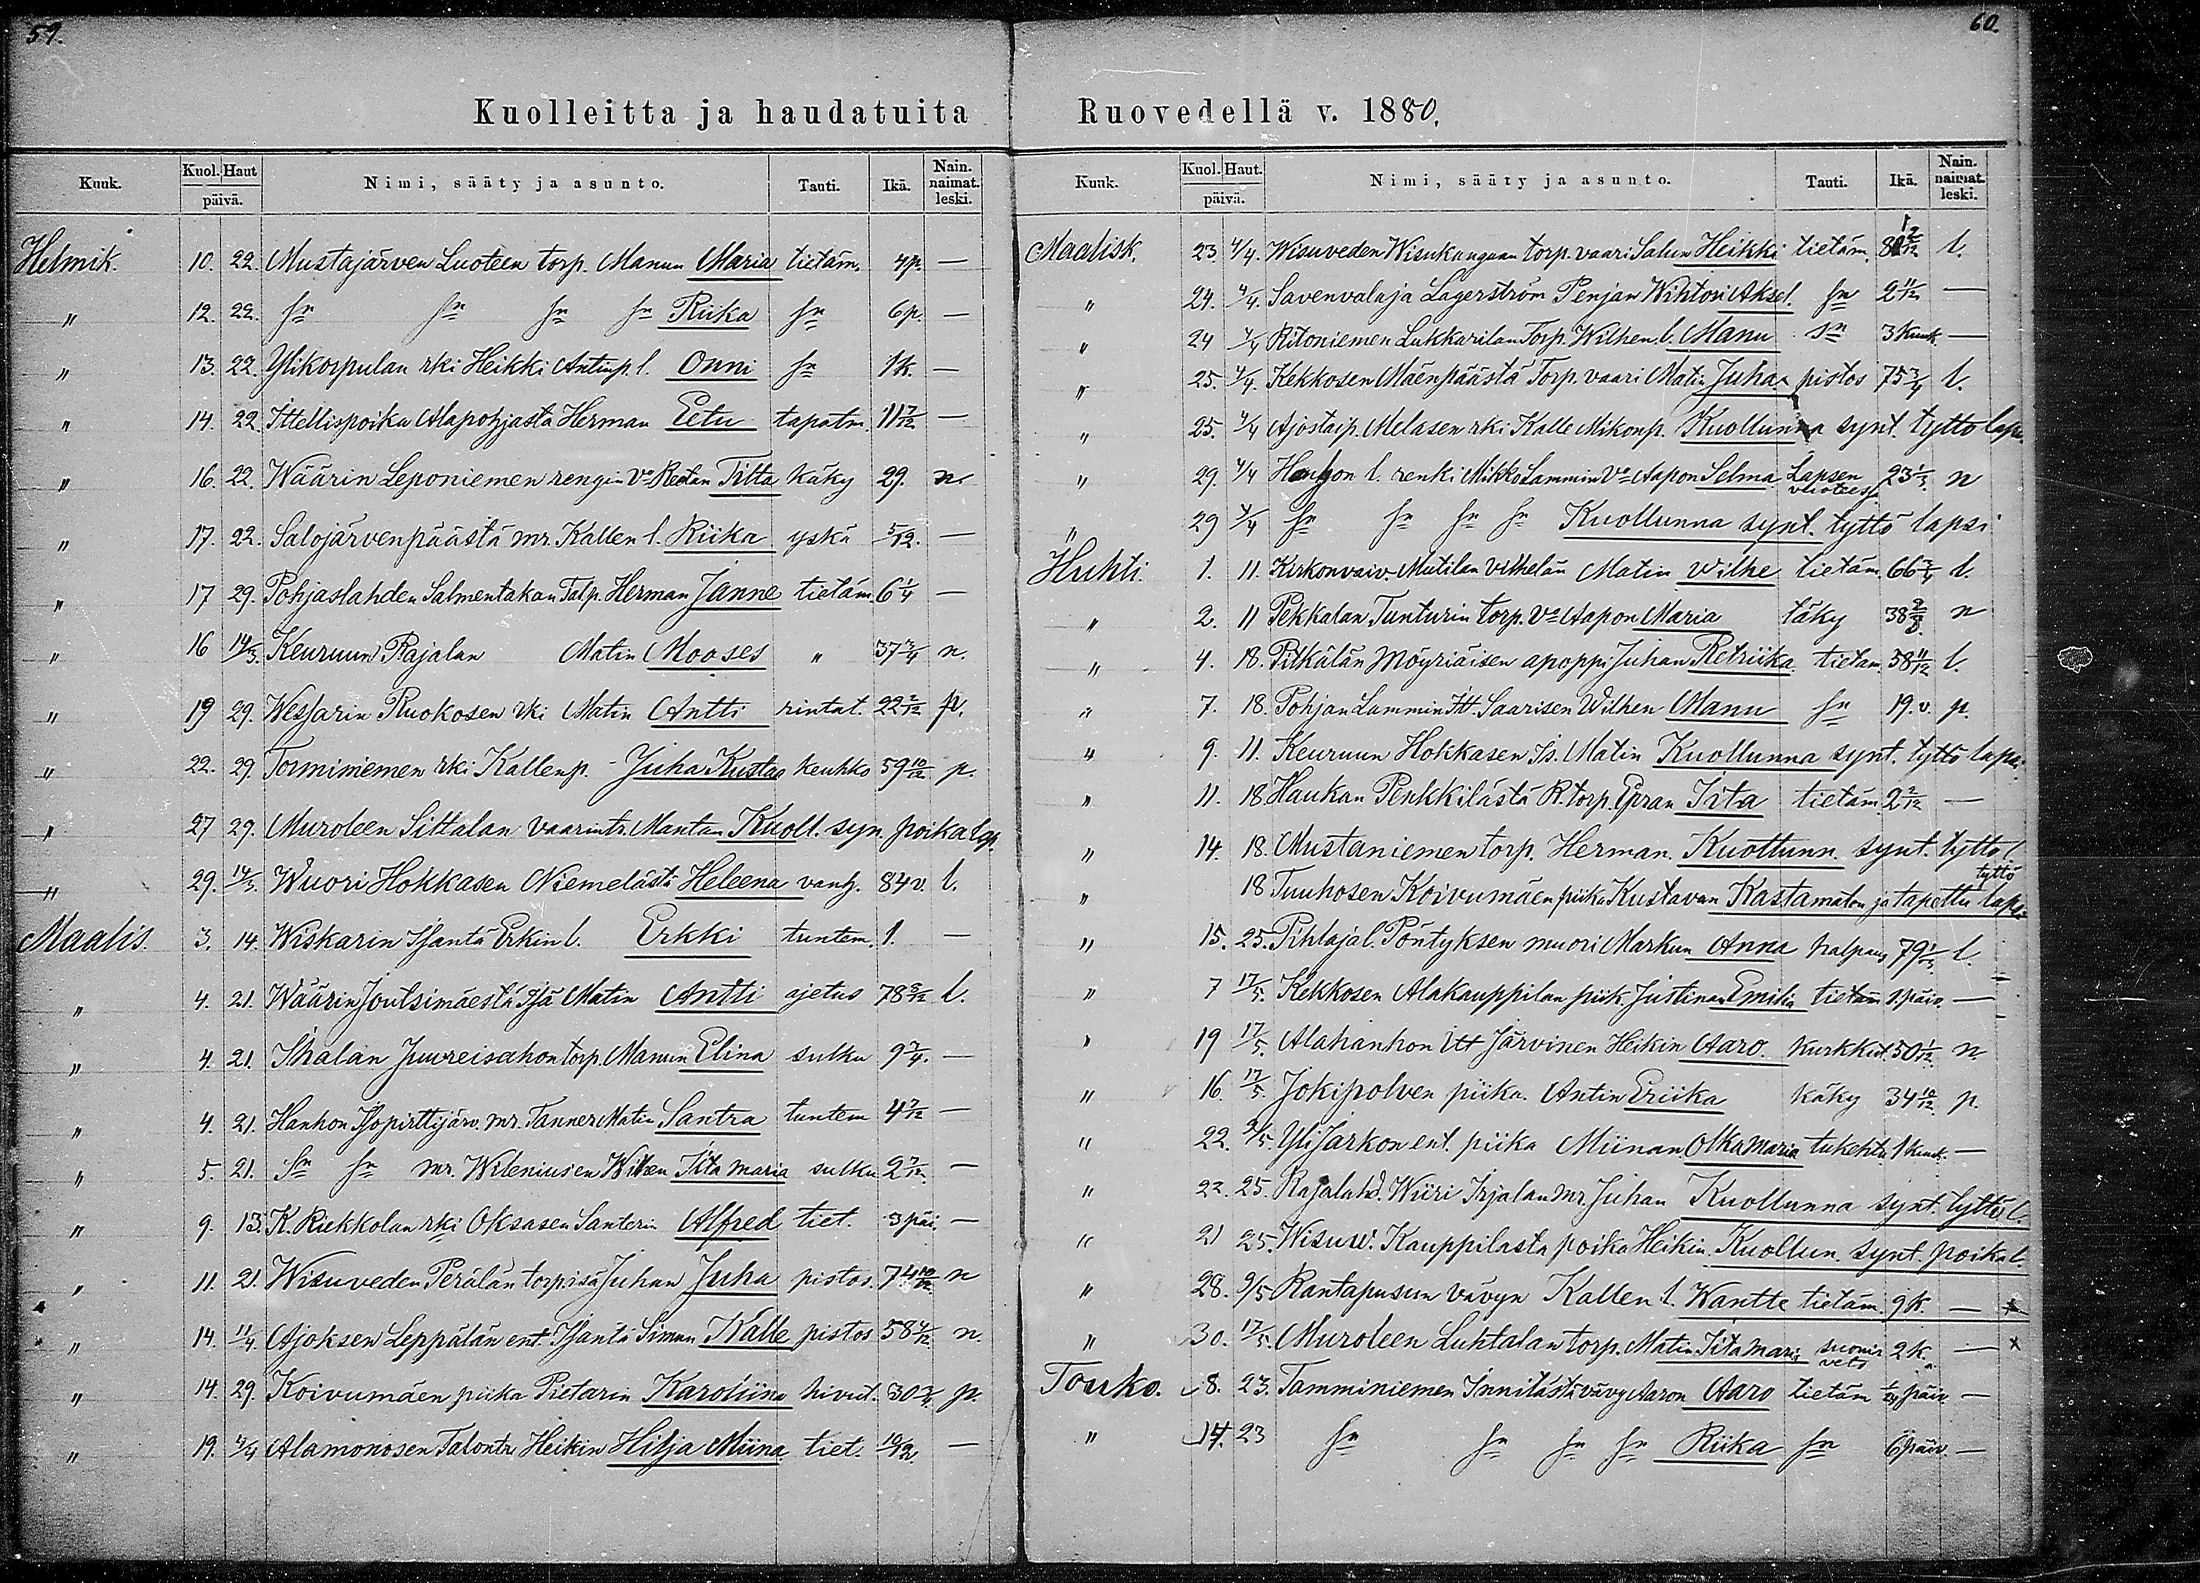 59.
Kuolleitta ja haudatuita
Kuuk. Kuol. Haut päivä. Nimi, sääty ja asunto. Tauti. Ikä. Nain. naimat. leski.
Helmik. 10. 22. Mustajärven Luoteen torp. Manun Maria tietäm. 4p. —
" 12. 22. sn sn sn sn Riika sn 6p. —
" 13. 22. Ylikorpulan rki Heikki Antinp. l. Onni sn 1k. —
" 14. 22. Ittellispoika Alapohjasta Herman Eetu tapatm. 11 7/12 —
" 16. 22. Wäärin Leponiemen rengin Vo Reetan Titta käky 29. n.
" 17. 22. Salojärvenpäästä mr. Kallen l. Riika yskä 5/12. —
" 17 29. Pohjaslahden Salmentakan Talp. Herman Janne tietäm. 6 1/4 —
" 16 14/3. Keuruun Rajalan Matin Mooses " 37 3/4 n.
" 19 29. Wessarin Ruokosen rki Matin Antti rintat. 22 2/12 p.
" 22. 29. Torminiemen rki Kallenp. - Juha Kustaa keuhko 59 10/12 p.
" 27 29. Muroleen Sittalan vaarintr. Mantan Kuoll. syn. poika lap.
" 29. 14/3. Wuori Hokkasen Niemelästä Heleena vanh. 84 v. l.
Maalis. 3. 14. Wiskarin Isäntä Erkin l. Erkki tuntem. 1. —
" 4. 21. Wäärin Joutsimäestä Isä Matin Antti ajetus 78 2/12 l.
" 4. 21. Ihalan Juureisahon torp. Manun Elina sulku 9 3/4. —
" 4. 21. Hanhon Isopirttijärv. mr. Tanner Matin Santra tuntem 4 7/12 —
" 5. 21. Sn sn mr. Wileniusen Wilhen Iita maria sulku 2 7/12. —
" 9. 13. K. Riekkolan rki Oksasen Santerin Alfred tiet. 3 päi. —
" 11. 21. Wisuveden Perälän torp isä Juhan Juha pistos. 74 10/12 n
" 14. 11/4 Ajoksen Leppälän ent. Isäntä Simun Kalle pistos 58 4/12 n.
" 14. 29. Koivumäen piika Pietarin Karoliina hivut. 30 3/4 p.
" 19. 4/4 Alamonosen Talontr Heikin Hilja Miina. tiet. 10/12. —
60.
Ruovedellä v. 1880.
Kuuk. Kuol. Haut. päivä. Nimi, sääty ja asunto. Tauti. Ikä. Nain. naimat. leski.
Maalisk. 23. 4/4. Wisuveden Wisukangaan torp. vaari Salun Heikki tietäm. l.
" 24. 4/4. Savenvalaja Lagerström Penjam Wihtori Aksel. sn 2 11/12 —
" 24 4/4 Ritoniemen Lukkarilan Torp. Wilhen. l. Manu sn 3 Kuuk. —
" 25. 4/4. Kekkosen Mäenpäästä Torp. vaari Matin Juha pistos 75 3/4 l.
" 25. 4/4 Ajostaip. Melasen rki Kalle Mikonp. Kuollunna synt. tyttö laps.
" 29. 4/4 Hanhon l. renki Mikko Lammin Vo Aapon Selma Lapsen vuoteess 23 n
" 29 4/4 sn sn sn sn Kuollunna synt. tyttö lapsi
Huhti. 1. 11. Kirkonvaiv. Mutilan vilhelän Matin Wilhe tietäm. 66 3/4 l.
" 2. 11 Pekkalan Tunturin torp. Vo Aapon Maria täky 38 n
" 4. 18. Pitkälän Möyriäisen apoppi Juhan Retriika tietäm. 58 11/12 l.
" 7. 18. Pohjan Lammin Itt. Saarisen Wilhen Manu sn 19. v. p.
" 9. 11. Keuruun Hokkasen Is. Matin Kuollunna synt. tyttö laps.
" 11. 18 Haukan Penkkilästä R. torp. Epran Iita tietäm 2 2/12 —
" 14. 18. Mustaniemen torp. Herman. Kuottunn. synt. tyttö l
" 18 Tuuhosen Koivumäen piika Kustavan Kastamaton ja tapettu tyttö laps.
" 15. 25. Pihlajal. Pöntyksen muori Markun Anna halpaus 79 l.
" 7 17/5. Kekkosen Alakauppilan piik. Justinan Emilia tietäm 1. päiv. —
" 19 17/5. Alahanhon Itt Järvinen Heikin Aaro. kurkkut. 50 1/12. n.
" 16. 17/5. Jokipolven piika. Antin Eriika käky 34 10/12. p.
" 22. 9/5. Yli Jarkon ent. piika Miinan Olka Maria tukehtu 1 kuuk. —
" 22. 25. Rajalahd. Wiiri Irjalan mr. Juhan Kuollunna synt. tyttö l.
" 21 25. Wisuw. Kauppilasta poika Heikin. Kuollun. synt. poika l.
" 28. 9/5 Rantapusun vävyn Kallen l. Wantte tietäm. 9 k. — x
" 30. 17/5. Muroleen Luhtalan torp. Matin Iita Maria suonenveto 2 k. — x
Touko. 8. 23. Tamminiemen Innilästä vävy Aaron Aaro tietäm päiv. —
" 14. 23 sn sn sn sn Riika sn 6 päiv. —